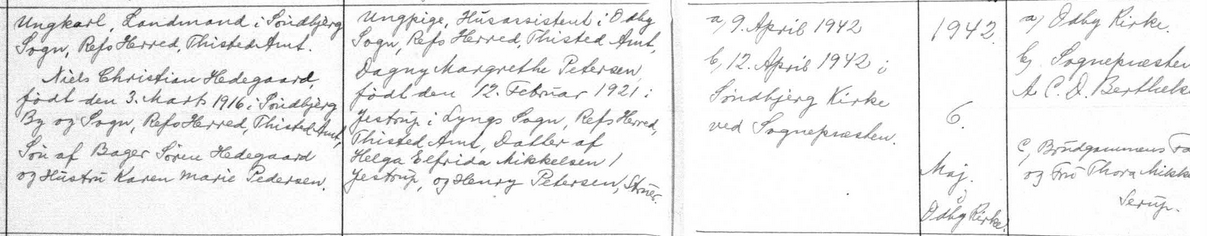 Ungkarl, Landmand i Søndbjerg
Sogn, Refs Herred, Thisted Amt.
Niels Christian Hedegaard,
født den 3. Marts 1916 i Søndbjerg
By og Sogn, Refs Herred, Thisted Amt,
Søn af Bager Søren Hedegaard
og Hustru Karen Marie Pedersen.
Ungpige, Husassistent i Odby
Sogn, Refs Herred, Thisted Amt,
Dagny Margrethe Petersen,
født den 12. Februar 1921 i
Jestrup i Lyngs Sogn, Refs Herred,
Thisted Amt, Datter af
Helga Elfrida Mikkelsen i
Jestrup, og Henry Petersen, Struer.
a, 9. April 1942
b, 12. April 1942 i
Søndbjerg Kirke
ved Sognepræsten.
1942.
6.
Maj.
i
Odby Kirke.
a, Odby Kirke.
b, Sognepræsten
A. C. D. Berthels
c, Brudgommens Fa
og Fru Thora Mikke